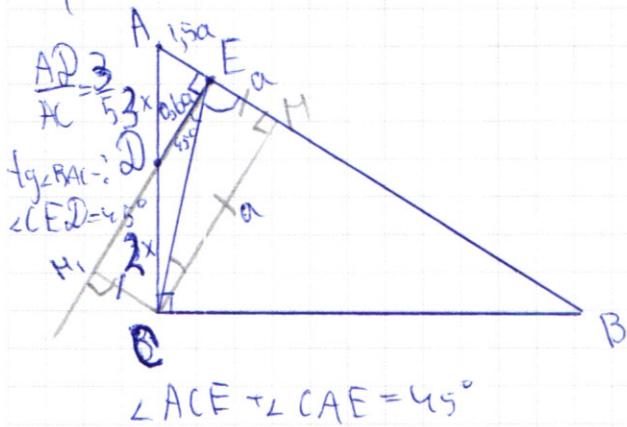 A 1,5a
E
AD/AC = 3/5 3x
a
H
0,6a
45°
D
tg∠BAC-?
∠CED=45°
a
H₁
2x
C
B
∠ACE + ∠CAE = 45°